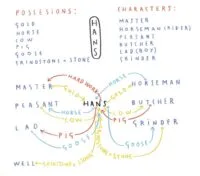 POSSESIONS:
GOLD
HORSE
COW
PIG
GOOSE
GRINDSTONE + STONE
HANS
CHARACTERS:
MASTER
HORSEMAN (RIDER)
PEASANT
BUTCHER
LAD (BOY)
GRINDER
MASTER
HARD WORK
GOLD
HORSE
GOLD
HORSEMAN
PEASANT
HORSE
COW
HANS
COW
PIG
BUTCHER
LAD
PIG
GOOSE
GOOSE
GRINDER
WELL
GRINDSTONE + STONE
GRINDSTONE + STONE